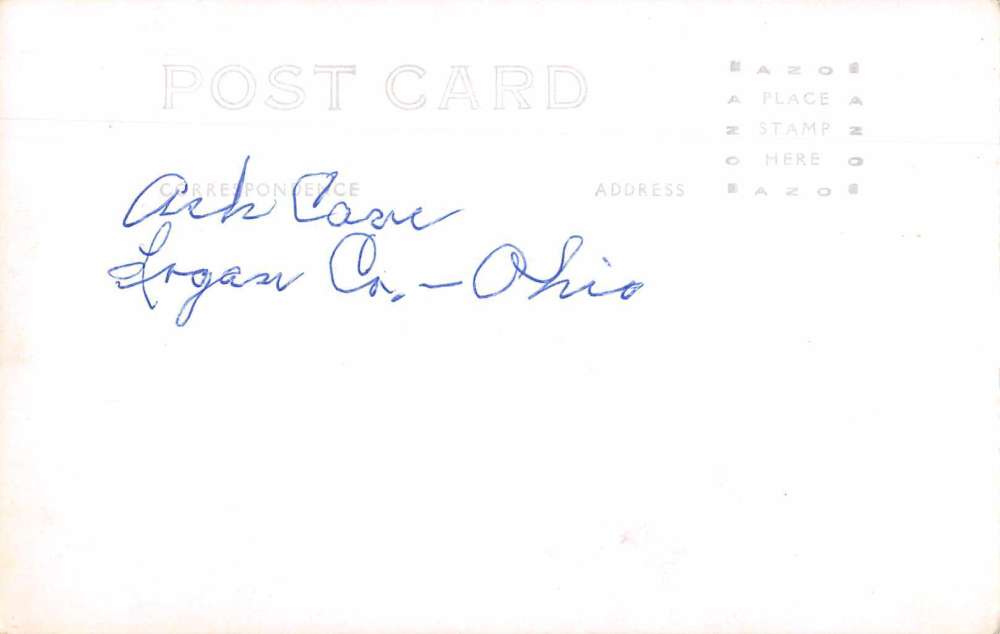 POST CARD
AZO
A PLACE A
Z STAMP Z
O HERE O
CORRESPONDENCE ADDRESS AZO
Ash Cave
Logan Co. - Ohio